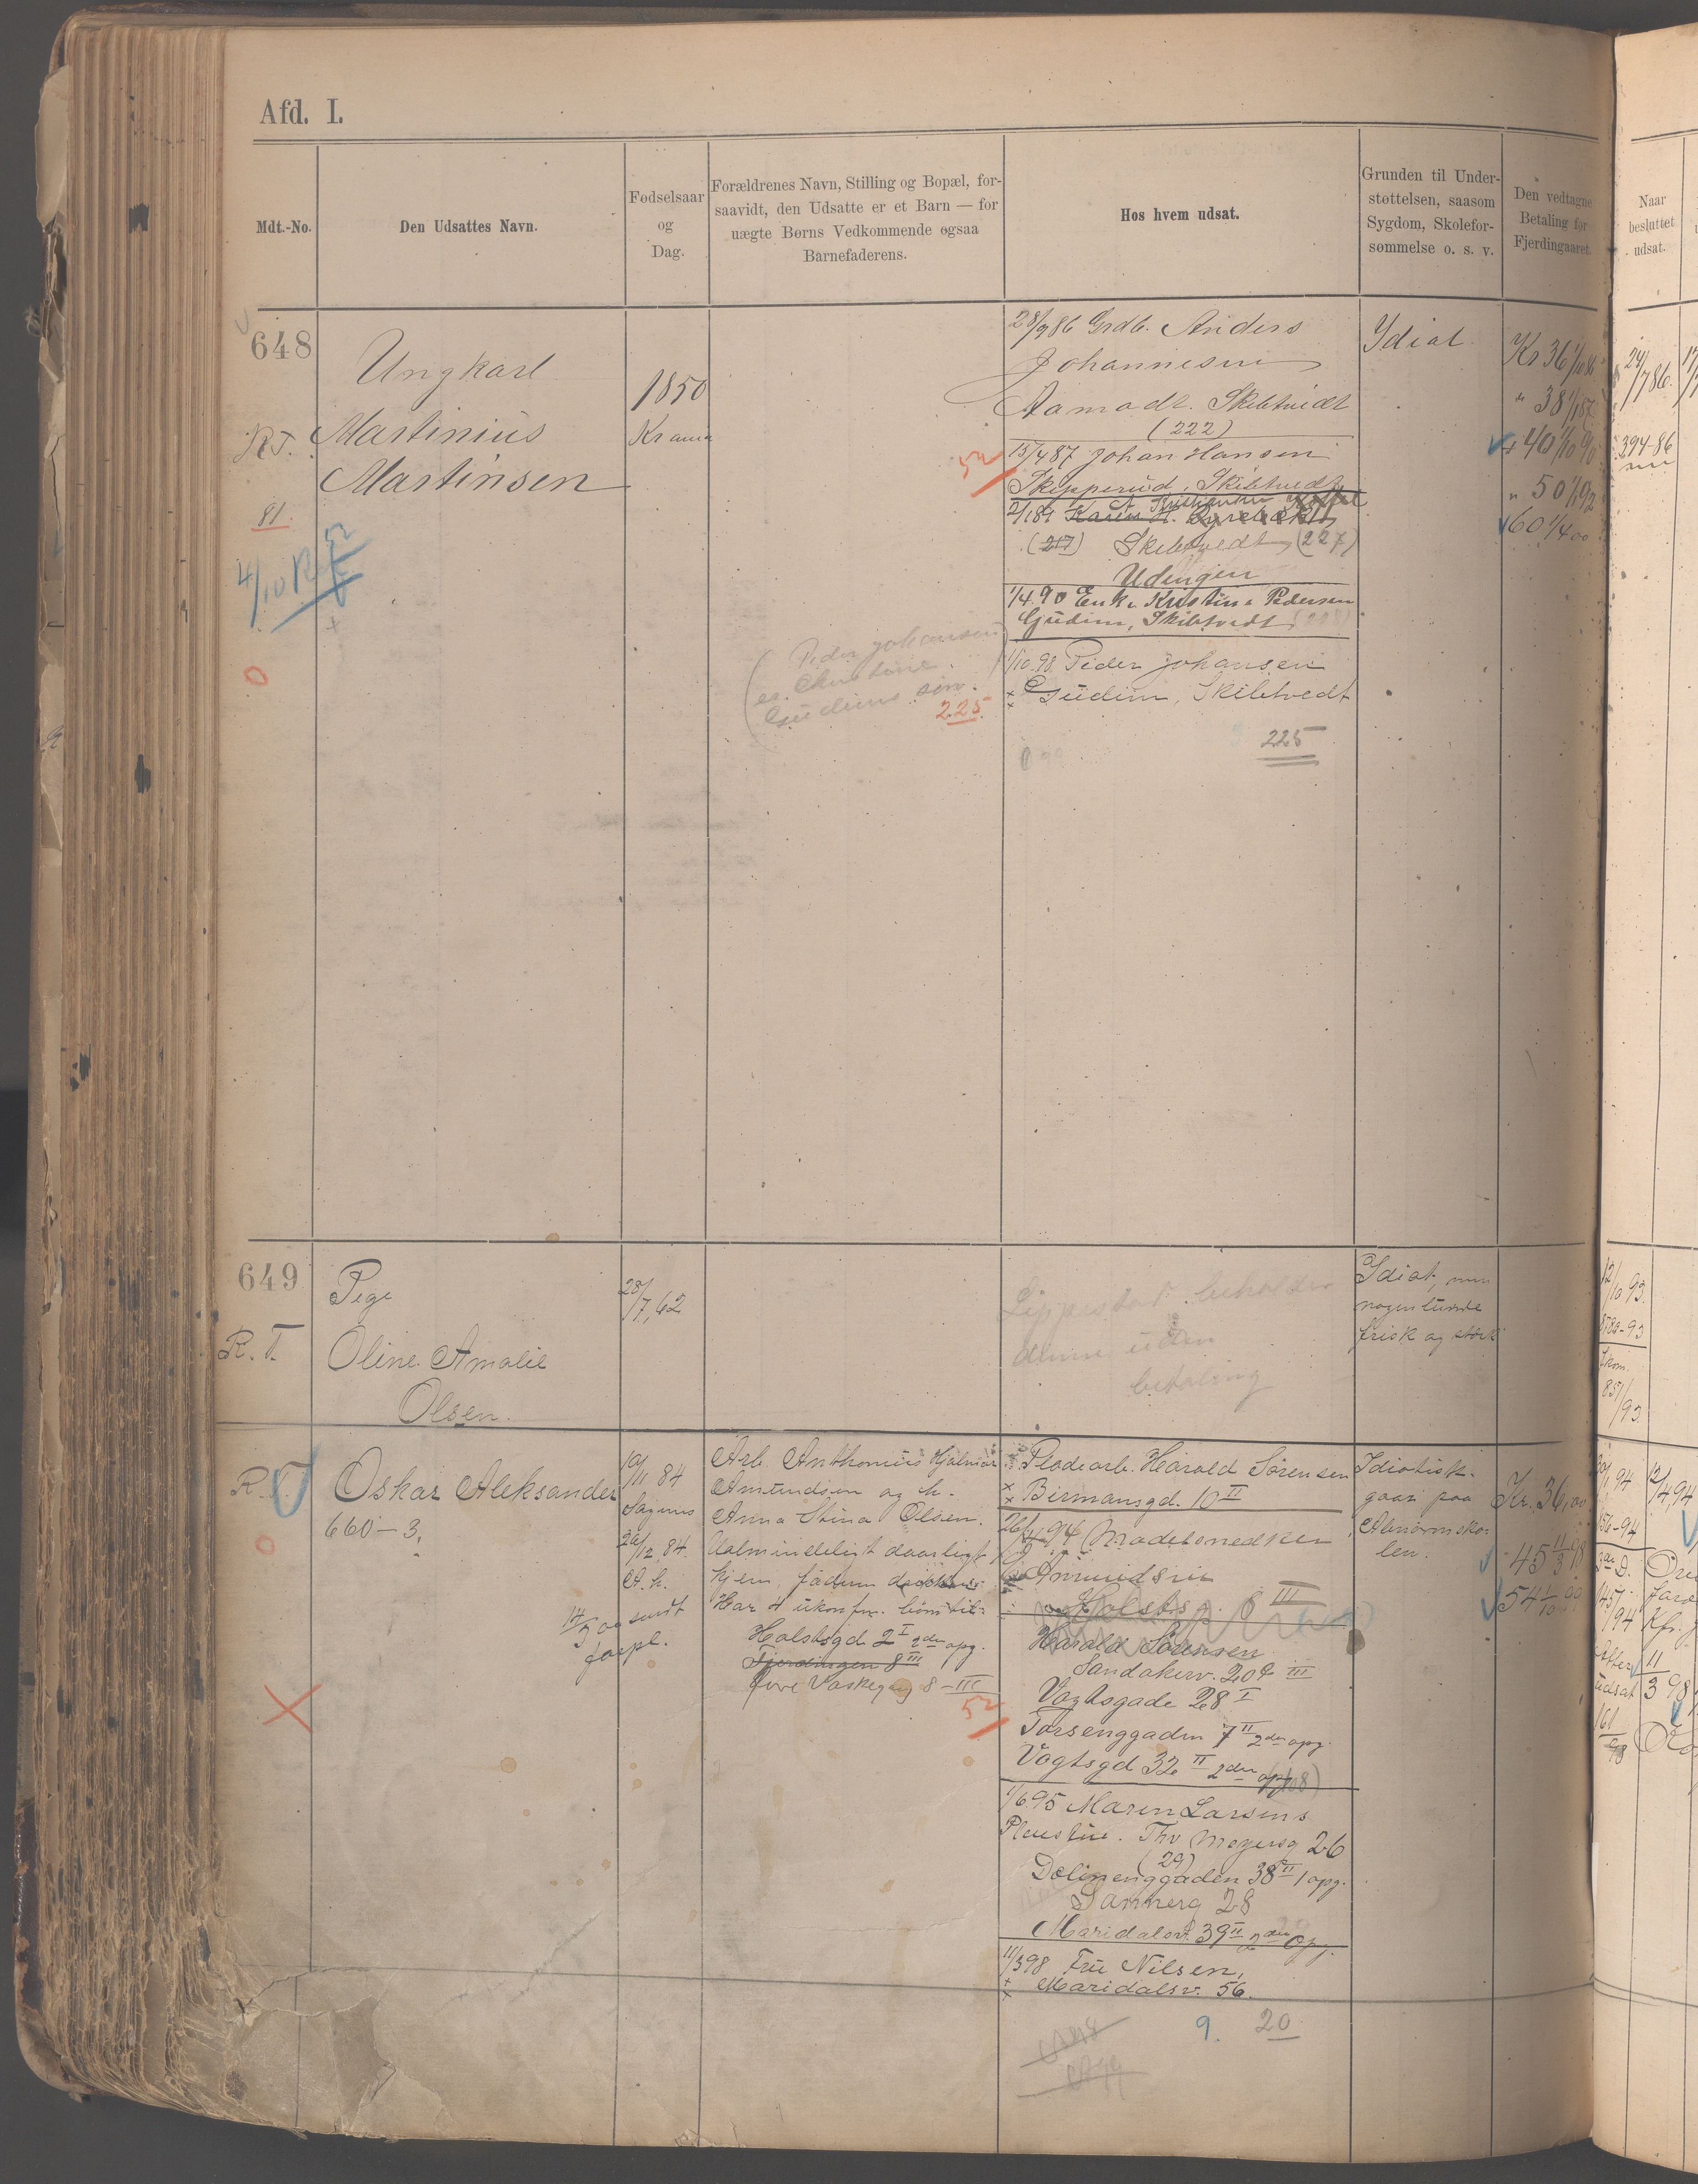 Afd. I.
Mdt.-No.
Den Udsattes Navn.
Fødselsaar
og
Dag.
Forældrenes Navn, Stilling og Bopæl, for-
saavidt, den Udsatte er et Barn — for
uægte Børns Vedkommende ogsaa
Barnefaderens.
Hos hvem udsat.
Grunden til Under-
støttelsen, saasom
Sygdom, Skolefor-
sømmelse o. s. v.
Den vedtagne
Betaling for
Fjerdingaaret.
Naar
besluttet
udsat.
648
Ungkarl
Martinius
Martinsen
R.T.
81
4/10
0
1850
Krania
28/9 86 Grdb. Anders
Johannesen
Aamodt. Skibtvedt
(222)
52
15/4 87 Johan Hansen
Skipperud, Skibtvedt
2/1 89 Karin
(217) Skibtvedt (227)
Udengen
1/4.90 Enke Kristine Pedersen
Gudim, Skibtvedt
1/10.98 Peder Johansen
Gudim, Skibtvedt
225
(Peder Johansen
er Christine
Gudims søn.
225
Idiot
Kr 36 1/10 86
" 38 1/1 87
" 40 1/10 90
" 50 1/1 92
60 1/4 00
24/7 86.
394-86
649
R. T.
Pige
Oline Amalie
Olsen.
28/7, 62
Lippestad beholder
denne uden
betaling
Idiot, men
nogenlunde
frisk og stærk
12/10 93.
85/93
R. T.
0
Oskar Aleksander
660-3.
10/11 84
Sagenes
26/12 84.
A. k.
14/5 00 sendt
forpl.
Arb. Anthonius Hjalmar
Amundsen og h.
Anna Stina Olsen.
Aalmindeligt daarligt
hjem, faderen drikker
Har 4 ukonfm. børn til
Holstsgd. 2 I 2den opg.
Fjerdingen 8 III
øvre Vaskegang 8 - III
52
Pladearb. Harald Sørensen
Birmansgd. 10 II
94 Modelsnedker
Amundsen
Holstsg. 8 III
Harald Sørensen
Sandakerv. 20 c III
Vogtsgade 28 I
Torsenggaden 7 II 2den opg.
Vogtsgd 32 II 2den opg
1/6 95 Maren Larsens
Pleiestue. Thv Meyersg 26
(29)
Dælinenggaden 38 II 1 opg.
Sannerg 28
Maridalsv. 39 II 2den opg.
11/3 98 Fru Nilsen,
Maridalsv. 56.
9. 20
Idiotisk.
gaar paa
Abnormsko-
len.
Kr. 36,00
" 45 11/3 98
54 1/10 99
156-94
12/4, 94
Efter
udsat
161/98
11/3 98